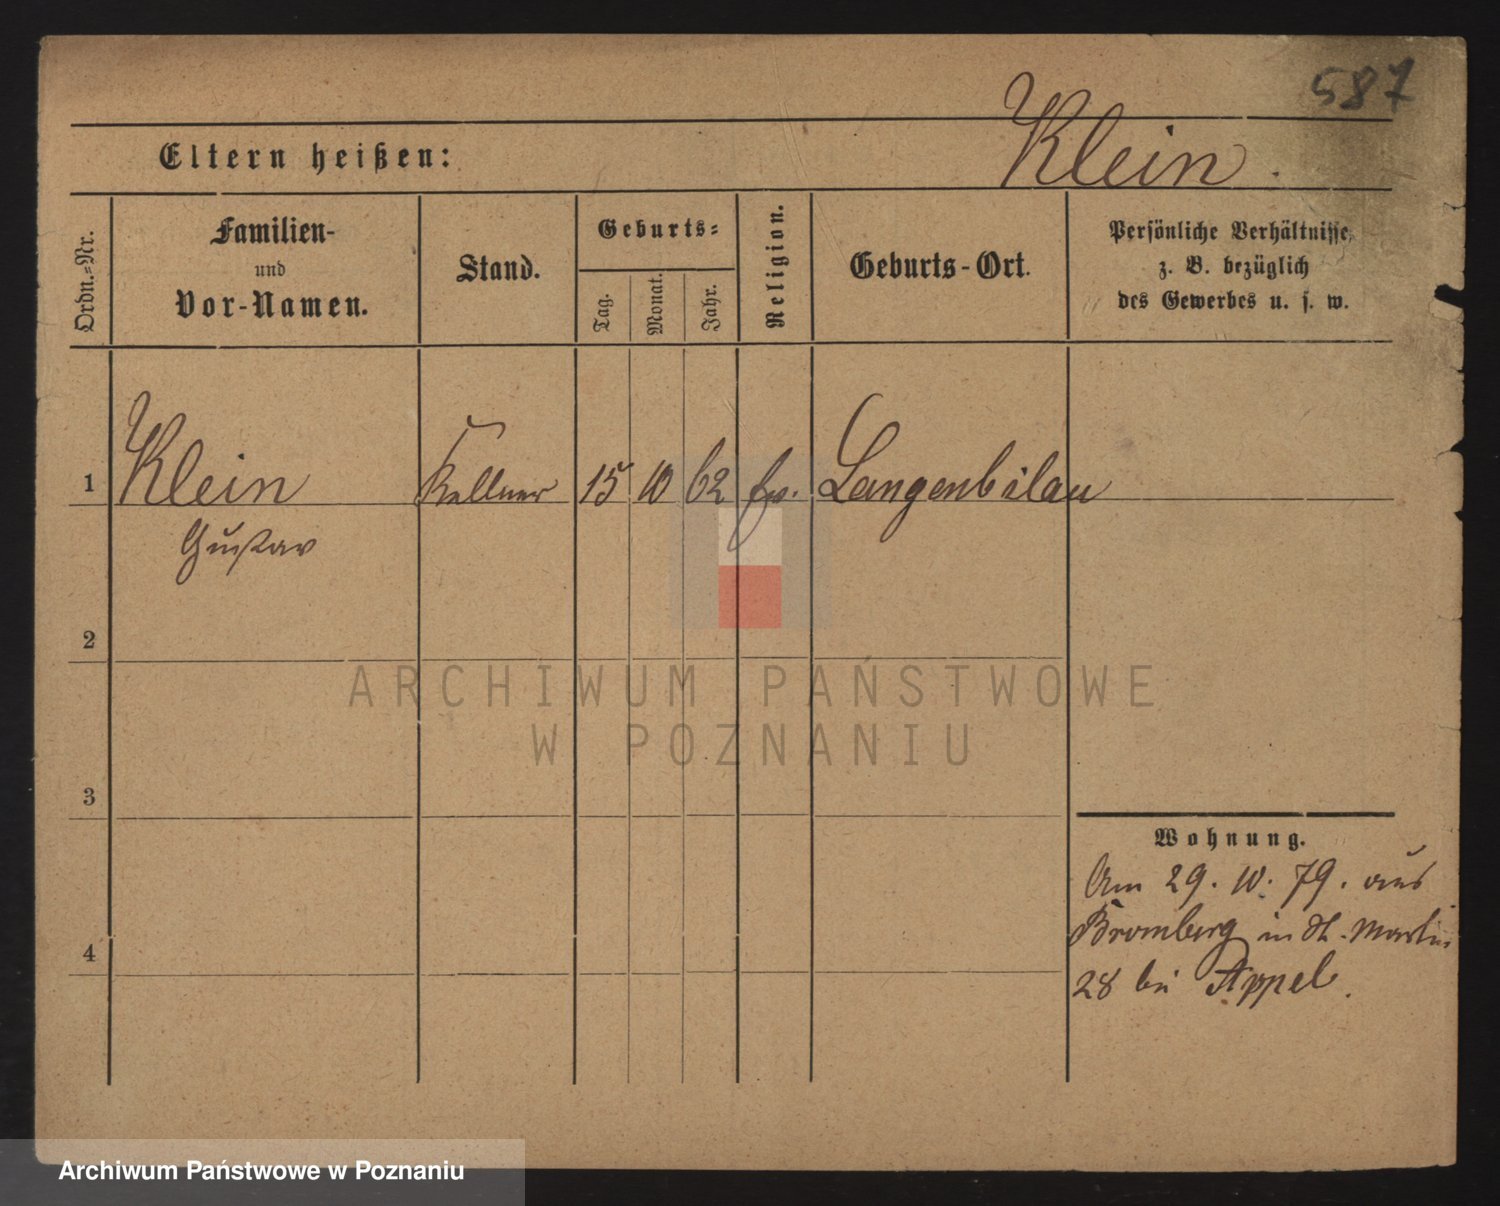 587
Klein.
Eltern heißen:
Ordn.-Nr.
Familien-
und
Vor-Namen.
Stand.
Geburts-
Tag.
Monat.
Jahr.
Religion.
Geburts-Ort.
Persönliche Verhältnisse,
z. B. bezüglich
des Gewerbes u. s. w.
1 Klein Kellner 15 10 62 Langenbilau
Gustav
2
ARCHIWUM PAŃSTWOWE
W POZNANIU
3
Wohnung.
Am 29. 10. 79. aus
Bromberg in St. Martin
4
28 bei Appel.
Archiwum Państwowe w Poznaniu